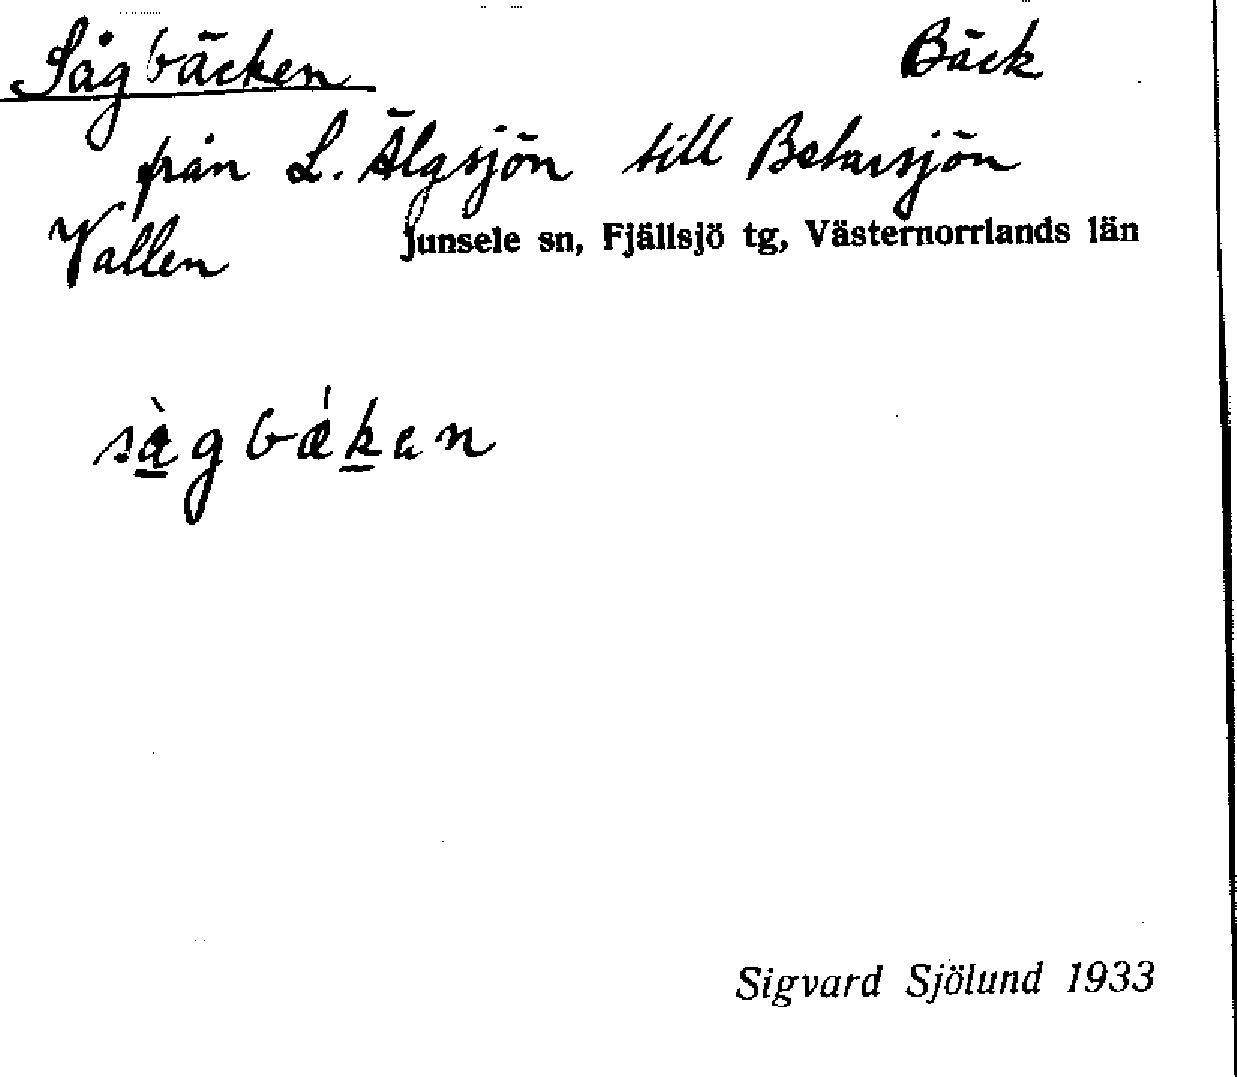 Sågbäcken Bäck
från L. Älgsjön till Betarsjön
Vallen Junsele sn, Fjällsjö tg, Västernorrlands län
sàgbǽken
Sigvard Sjölund 1933